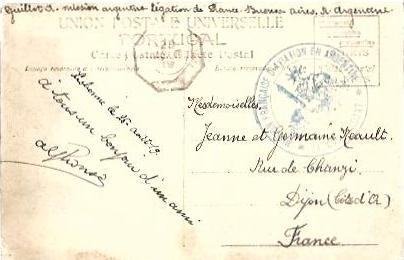 Guillot A. mission argentine légation de France Buenos-aires, R. Argentine
UNION POSTALE UNIVERSELLE
PORTUGAL
Carte postale Bilhete Postal
Lisbonne le 25 août 19
à tous un bonjour d'un ami
alphonse
Mesdemoiselles,
Jeanne et Germaine Réault.
Rue de Chanzi.
Dijon (Côte d'Or)
France